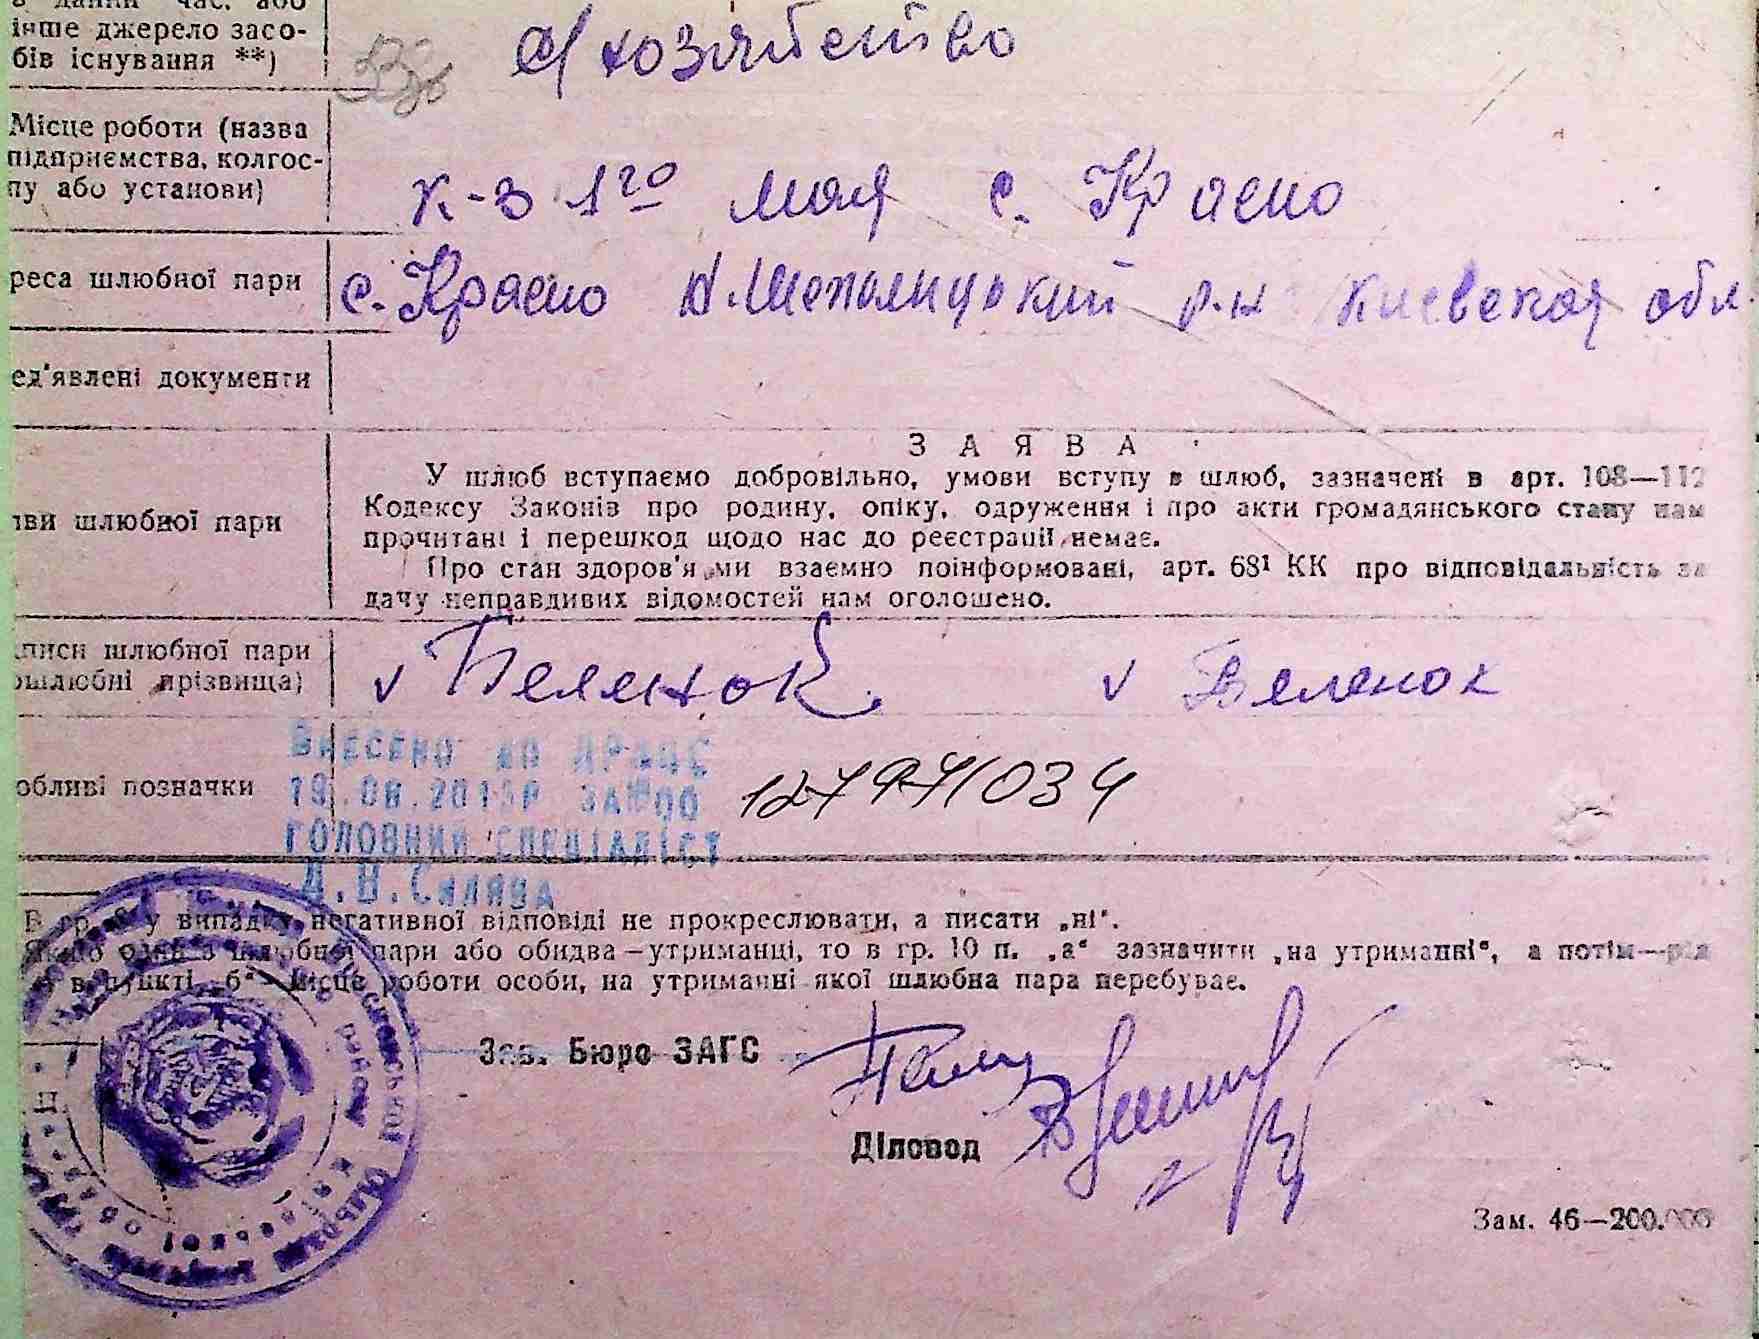 в даний час, або
інше джерело засо-
бів існування **)
с/хозяйство
Місце роботи (назва
підприємства, колгос-
пу або установи)
к-з 1го мая с. Красно
реса шлюбної пари
с. Красно Киевская обл.
ед'явлені документи
ЗАЯВА
У шлюб вступаємо добровільно, умови вступу в шлюб, зазначені в арт. 108—112
Кодексу Законів про родину, опіку, одруження і про акти громадянського стану нам
прочитані і перешкод щодо нас до реєстрації немає.
Про стан здоров'я ми взаємно поінформовані, арт. 68¹ КК про відповідальність за
дачу неправдивих відомостей нам оголошено.
ови шлюбної пари
писи шлюбної пари
ошлюбні прізвища)
Беленок Беленок
обливі позначки
ВНЕСЕНО ДО ДРАЦС
19.08.201 Р. ЗА №00
ГОЛОВНИЙ СПЕЦІАЛІСТ
127971034
В гр. 8 у випадку негативної відповіді не прокреслювати, а писати „ні“.
Якщо один з шлюбної пари або обидва—утриманці, то в гр. 10 п. „а“ зазначити „на утриманні“, а потім—рід
в пункті „б“ місце роботи особи, на утриманні якої шлюбна пара перебуває.
Зав. Бюро ЗАГС
Діловод
Зам. 46—200.000